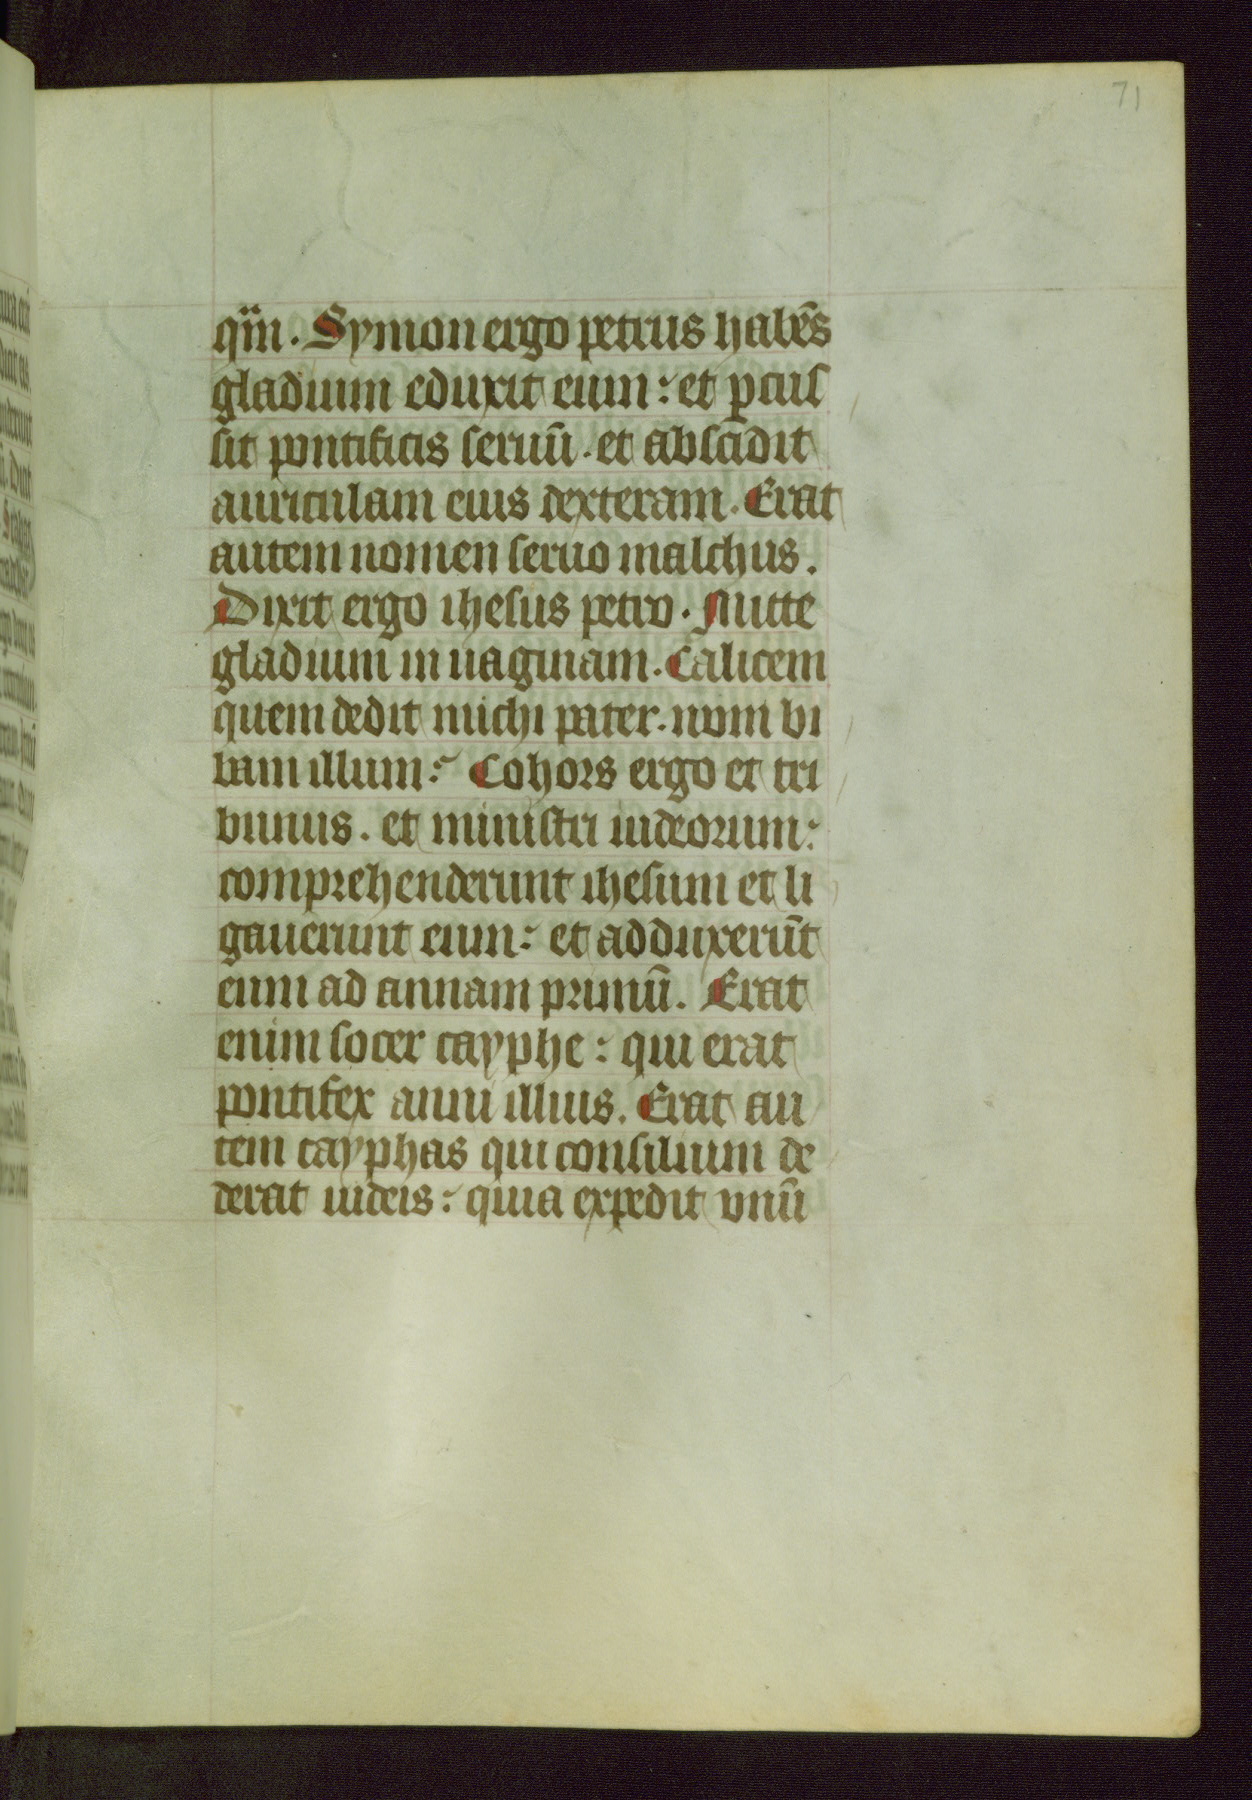 71
qm̄. Symon ergo petrus habēs
gladium eduxit eum: et ꝑcus
sit pontificis seruū. et abscidit
auriculam eius dexteram. Erat
autem nomen seruo malchus.
Dixit ergo ihesus petro. Mitte
gladium in uaginam. Calicem
quem dedit michi pater. nom bi
bam illum: Cohors ergo et tri
bunus. et ministri iudeorum:
comprehenderunt ihesum et li
gauerunt eum: et adduxerūt
eum ad annam primū. Erat
enim socer cayphe: qui erat
pontifex anni illius. Erat au
tem cayphas qui consilium de
derat iudeis: quia expedit vnū